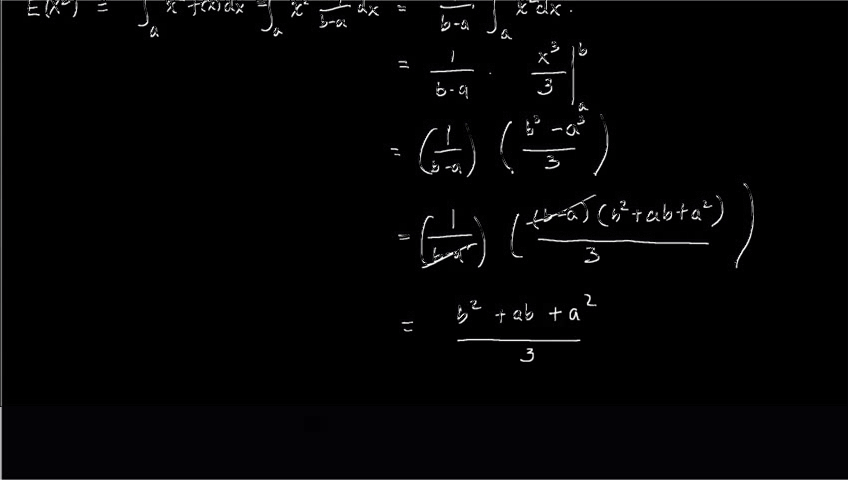 E(x²) = ∫ₐ x² f(x) dx = ∫ₐ x² 1/(b-a) dx = 1/(b-a) ∫ₐ x² dx.
= 1/(b-a) · x³/3 |ₐᵇ
= (1/(b-a)) ((b³ - a³)/3)
= (1/(b-a)) ((b-a)(b² + ab + a²)/3)
= (b² + ab + a²)/3